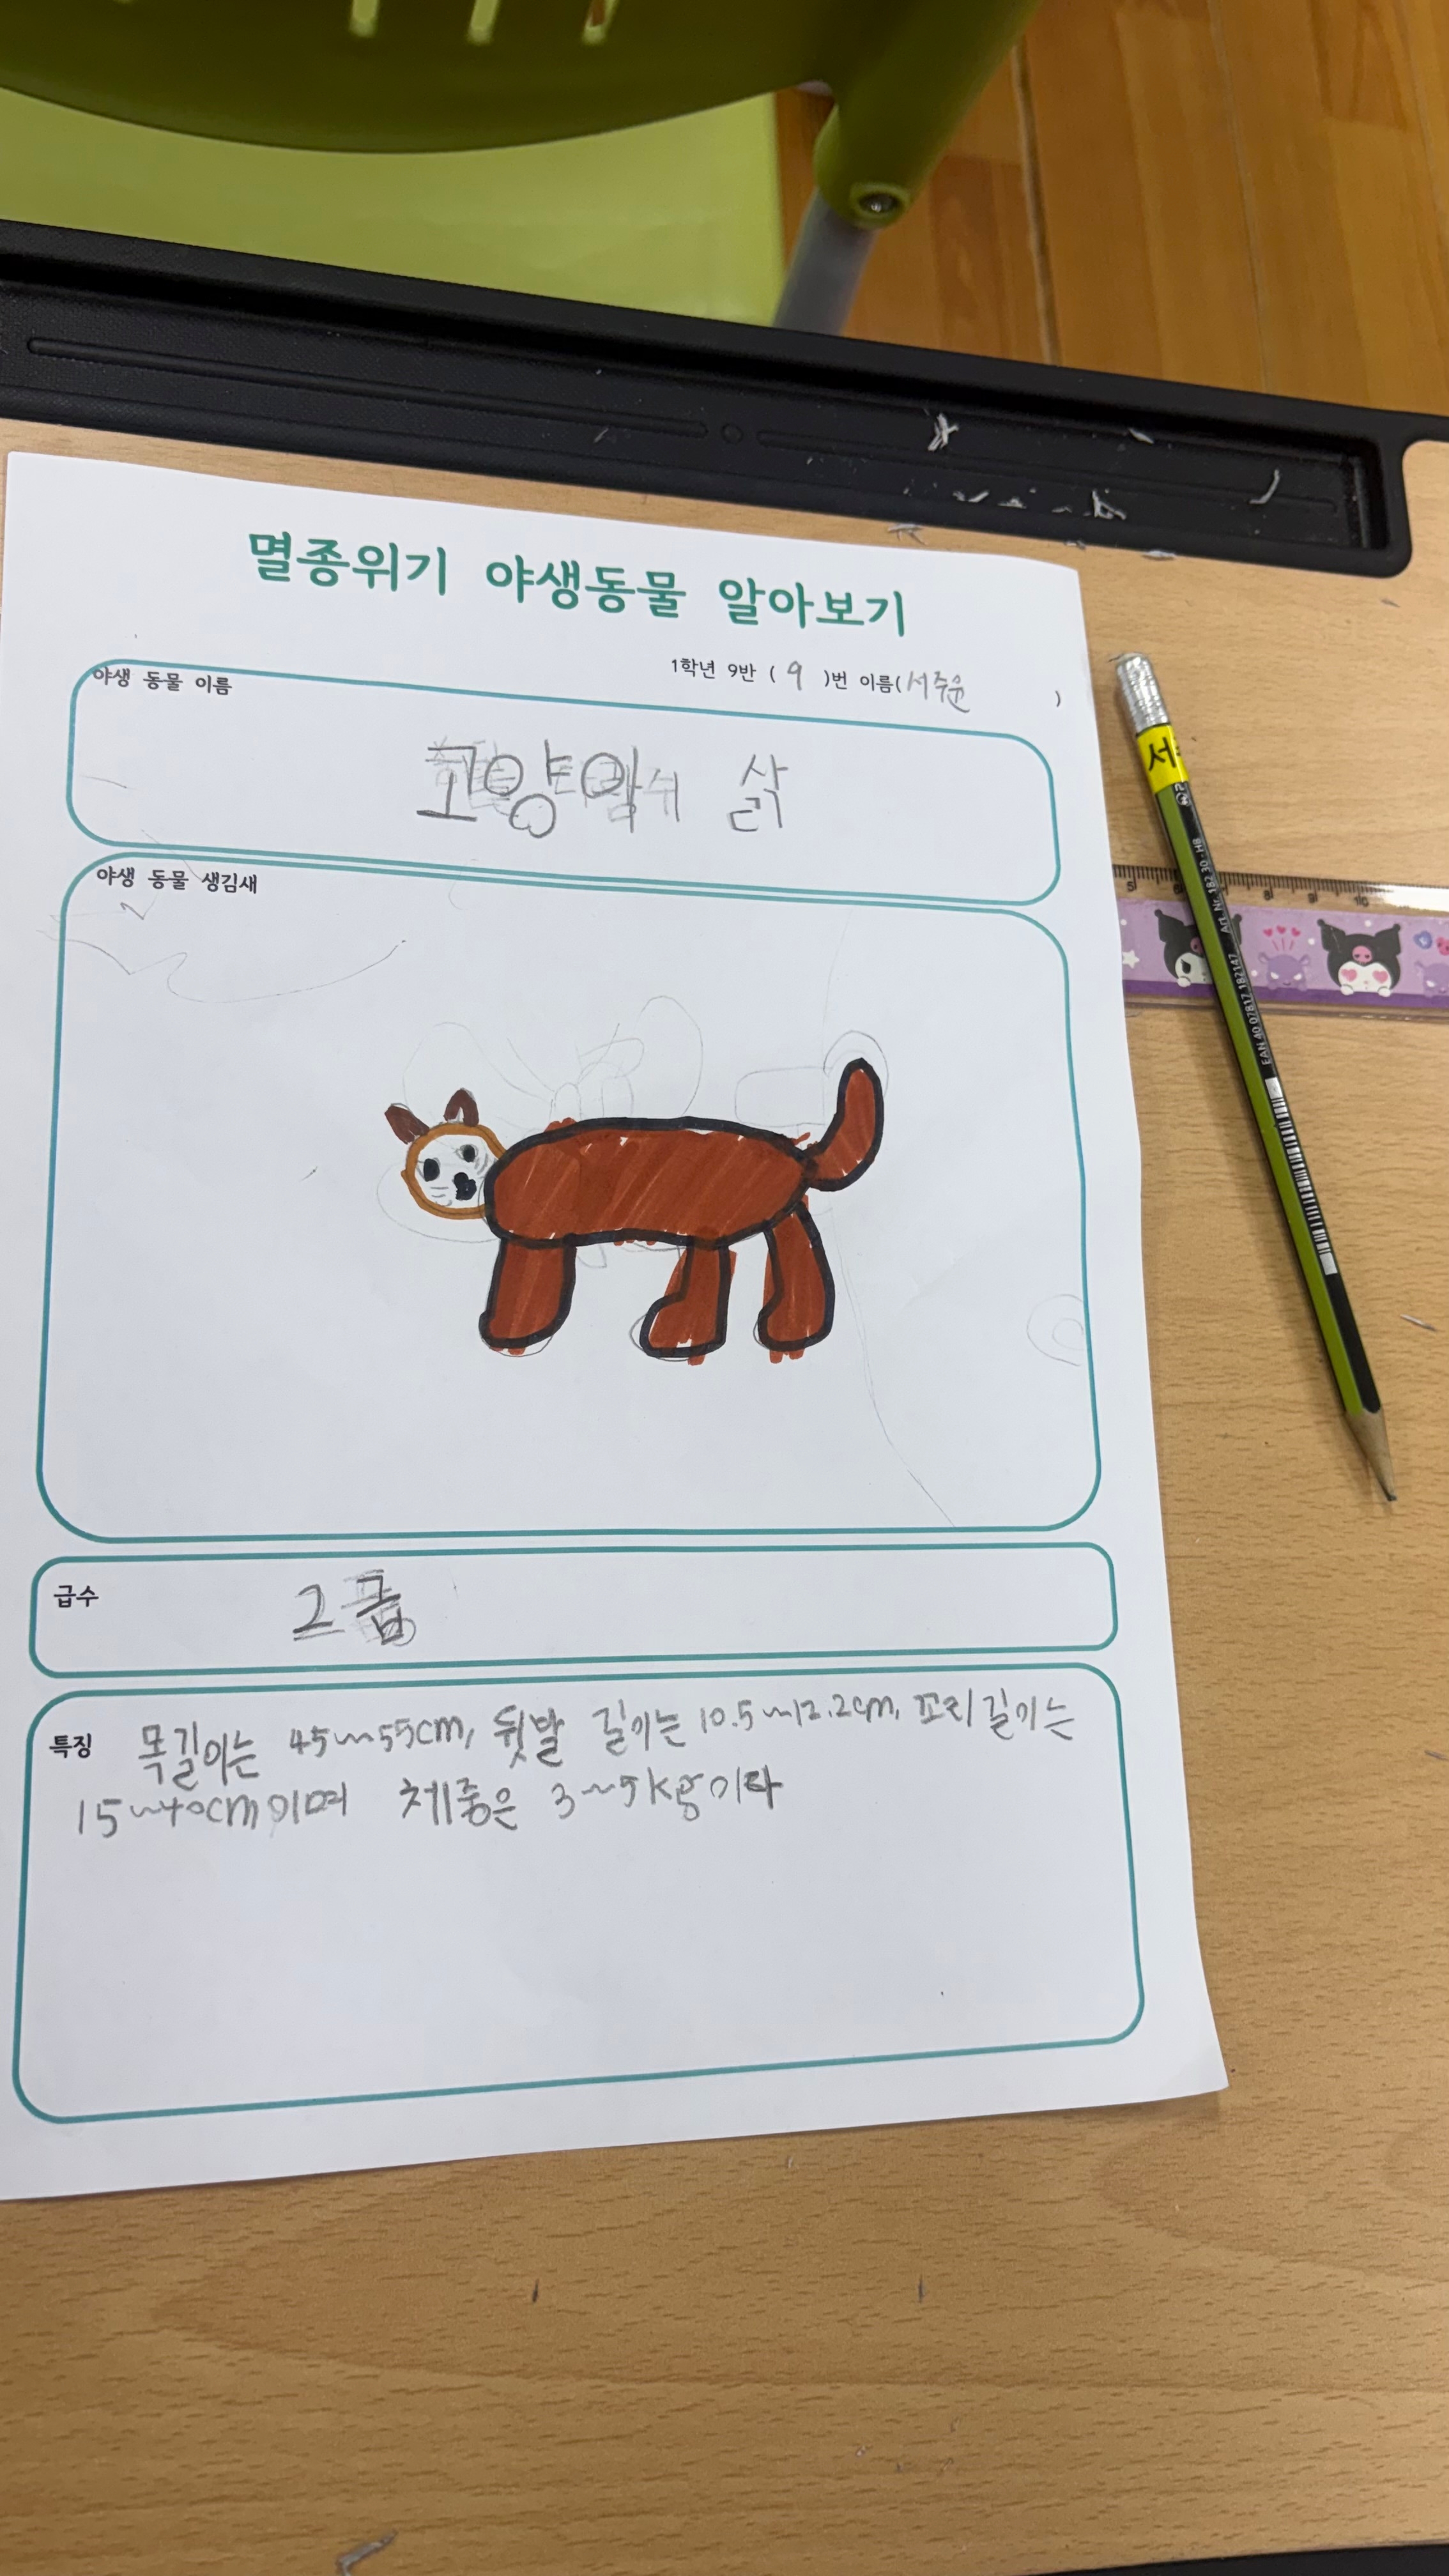 멸종위기 야생동물 알아보기
1학년 9반 ( 9 )번 이름(서주윤)
야생 동물 이름
삵
야생 동물 생김새
급수
2급
특징 목길이는 45~55cm, 뒷발 길이는 10.5~12.2cm, 꼬리길이는
15~40cm이며 체중은 3~5kg이다
서
Art. Nr. 182 30-HB
EAN 40 07817 182147
5 6 8 9 10